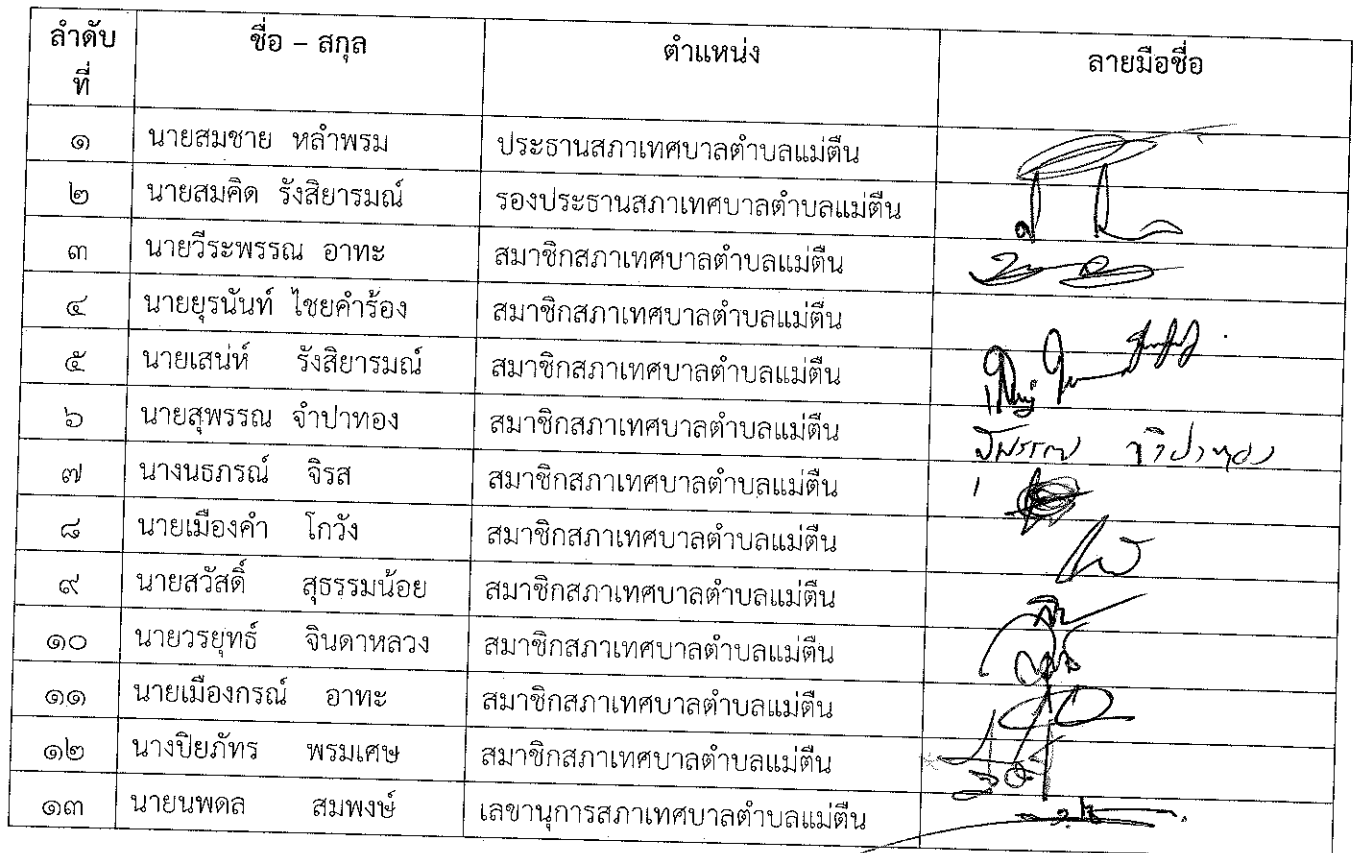 ลำดับที่ ชื่อ – สกุล ตำแหน่ง ลายมือชื่อ
๑ นายสมชาย หลำพรม ประธานสภาเทศบาลตำบลแม่ตืน
๒ นายสมคิด รังสิยารมณ์ รองประธานสภาเทศบาลตำบลแม่ตืน
๓ นายวีระพรรณ อาทะ สมาชิกสภาเทศบาลตำบลแม่ตืน
๔ นายยุรนันท์ ไชยคำร้อง สมาชิกสภาเทศบาลตำบลแม่ตืน
๕ นายเสน่ห์ รังสิยารมณ์ สมาชิกสภาเทศบาลตำบลแม่ตืน
๖ นายสุพรรณ จำปาทอง สมาชิกสภาเทศบาลตำบลแม่ตืน สุพรรณ จำปาทอง
๗ นางนธภรณ์ จิรส สมาชิกสภาเทศบาลตำบลแม่ตืน
๘ นายเมืองคำ โกวัง สมาชิกสภาเทศบาลตำบลแม่ตืน
๙ นายสวัสดิ์ สุธรรมน้อย สมาชิกสภาเทศบาลตำบลแม่ตืน
๑๐ นายวรยุทธ์ จินดาหลวง สมาชิกสภาเทศบาลตำบลแม่ตืน
๑๑ นายเมืองกรณ์ อาทะ สมาชิกสภาเทศบาลตำบลแม่ตืน
๑๒ นางปิยภัทร พรมเศษ สมาชิกสภาเทศบาลตำบลแม่ตืน
๑๓ นายนพดล สมพงษ์ เลขานุการสภาเทศบาลตำบลแม่ตืน